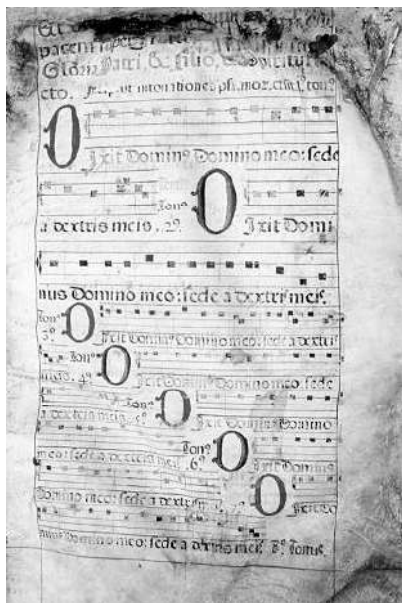 Et
pacem
Gloria Patri, & filio, & spiritui
cto.
Dixit Domin9 Domino meo: sede
Ton9
a dextris meis. 29. Dixit Domi
nus Domino meo: sede a dextris meis.
Ton9
39. Dixit Domin9 Domino meo: sede a dextris
Ton9
meis. 49. Dixit Domin9 Domino meo: sede
Ton9
a dextris meis. 59. Dixit Domin9 Domino
Ton9
meo: sede a dextris meis. 69. Dixit Domin9
Domino meo: sede a dextris Dixit Do
minus Domino meo: sede a dextris meis. 89. Tonus.